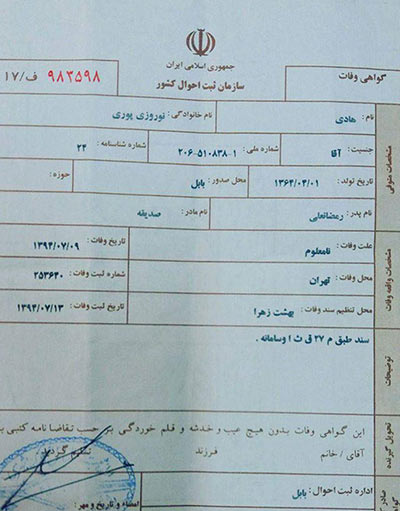 جمهوری اسلامی ایران
سازمان ثبت احوال کشور
گواهی وفات
۹۸۳۵۹۸ ف/۱۷
نام : هادی
نام خانوادگی : نوروزی پوری
جنسیت : آقا
شماره ملی : ۲۰۶-۵۱۰۸۳۸-۱
شماره شناسنامه : ۲۴
تاریخ تولد : ۱۳۶۴/۰۴/۰۱
محل صدور : بابل
حوزه :
نام پدر : رمضانعلی
نام مادر : صدیقه
مشخصات متوفی
علت وفات : نامعلوم
تاریخ وفات : ۱۳۹۴/۰۷/۰۹
محل وفات : تهران
شماره ثبت وفات : ۲۵۳۶۴۰
محل تنظیم سند وفات : بهشت زهرا
تاریخ ثبت وفات : ۱۳۹۴/۰۷/۱۳
مشخصات واقعه وفات
سند طبق م ۲۷ ق ث ا وسامانه .
توضیحات
این گواهی وفات بدون هیچ عیب و خدشه و قلم خوردگی بر حسب تقاضا نامه کتبی
آقای / خانم فرزند تسلیم گردید
تحویل گیرنده
اداره ثبت احوال : بابل
امضاء و تاریخ و مهر :
صادر